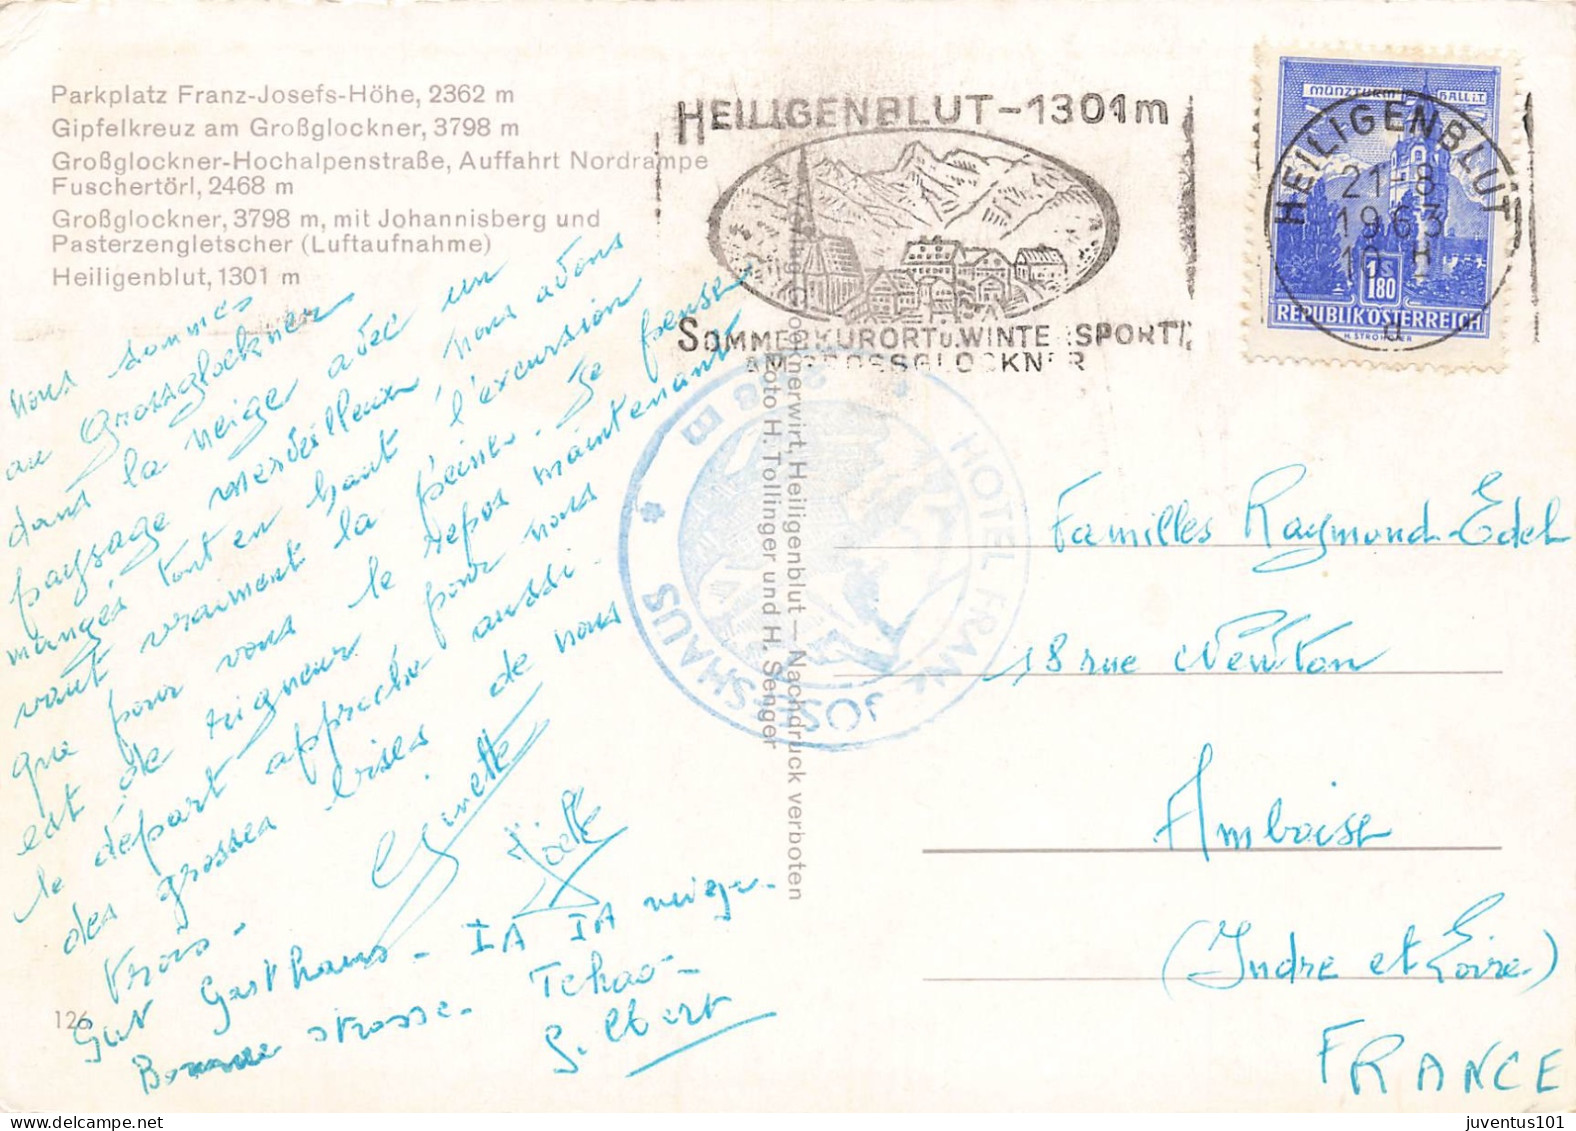 Parkplatz Franz-Josefs-Höhe, 2362 m
Gipfelkreuz am Großglockner, 3798 m
Großglockner-Hochalpenstraße, Auffahrt Nordrampe
Fuschertörl, 2468 m
Großglockner, 3798 m, mit Johannisberg und
Pasterzengletscher (Luftaufnahme)
Heiligenblut, 1301 m
nous sommes
au Grossglockner
dans la neige avec un
paysage merveilleux nous avons
mangés tout en haut l'excursion
vaut vraiment la peine. Je pense
que pour vous le repos maintenant
est de rigueur pour nous
le départ approche aussi.
des grosses bises de nous
trois.
Ginette
Joëlle
Gut Gasthaus. IA IA neige.
strasse. Tchao
Gilbert
126
HEILIGENBLUT-1301m
SOMMERKURORT u. WINTERSPORT
AM GROSSGLOCKNER
MÜNZTURM HALL i.T.
1S 80
REPUBLIK ÖSTERREICH
H. STROHOFER
HEILIGENBLUT
21-8
1963
10 H
d
HOTEL FRANZ JOSEFSHAUS
Glocknerwirt, Heiligenblut — Nachdruck verboten
Foto H. Tollinger und H. Senger
Familles Raymond-Edel
18 rue Newton
Amboise
(Indre et Loire)
FRANCE
juventus101